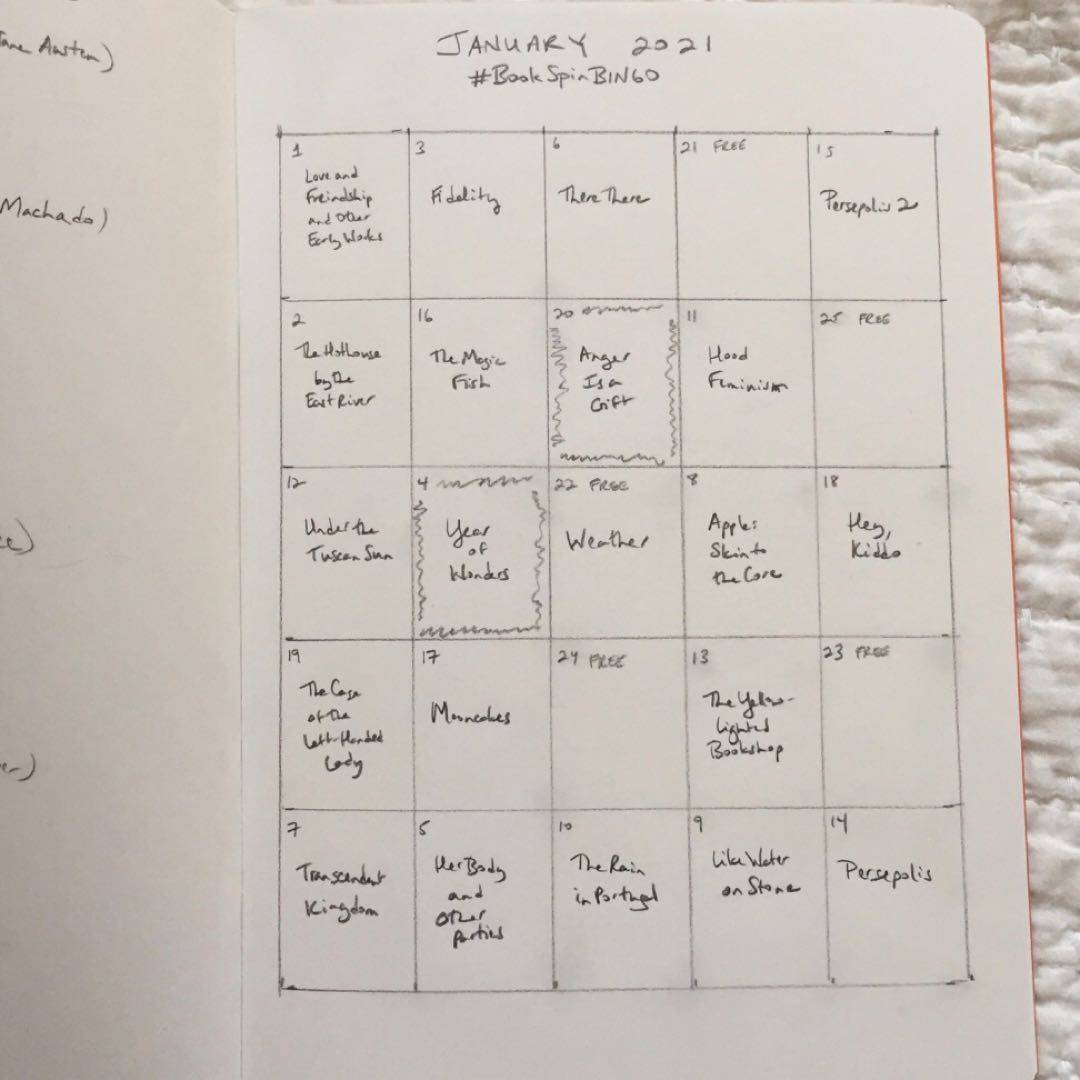 Jane Austen)
Machado)
JANUARY 2021
#BookSpinBINGO
1
Love and
Freindship
and Other
Early Works
3
Fidelity
6
There There
21 FREE
15
Persepolis 2
2
The Hothouse
by the
East River
16
The Magic
Fish
20
Anger
Is a
Gift
11
Hood
Feminism
25 FREE
12
Under the
Tuscan Sun
4
Year
of
Wonders
22 FREE
Weather
8
Apple:
Skin to
the Core
18
Hey,
Kiddo
19
The Case
of the
Left-Handed
Lady
17
Mooncakes
24 FREE
13
The Yellow-
Lighted
Bookshop
23 FREE
7
Transcendent
Kingdom
5
Her Body
and
Other
Parties
10
The Rain
in Portugal
9
Like Water
on Stone
14
Persepolis